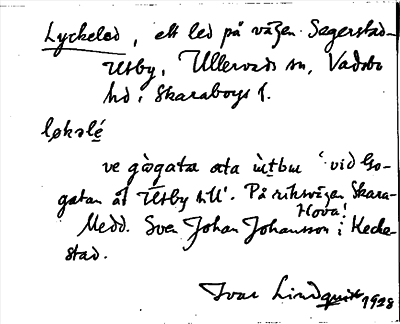 Lyckeled, ett led på vägen Sagerstad-
Utby, Ullervads sn, Vadsbo
hd i Skaraborgs l.
løkalé
ve gògata ata ùtbu ‘vid Go-
gatan åt Utby till’. På riksvägen Skara-
Hova!
Medd. Sven Johan Johansson i Hecke-
stad.
Ivar Lindquist 1928